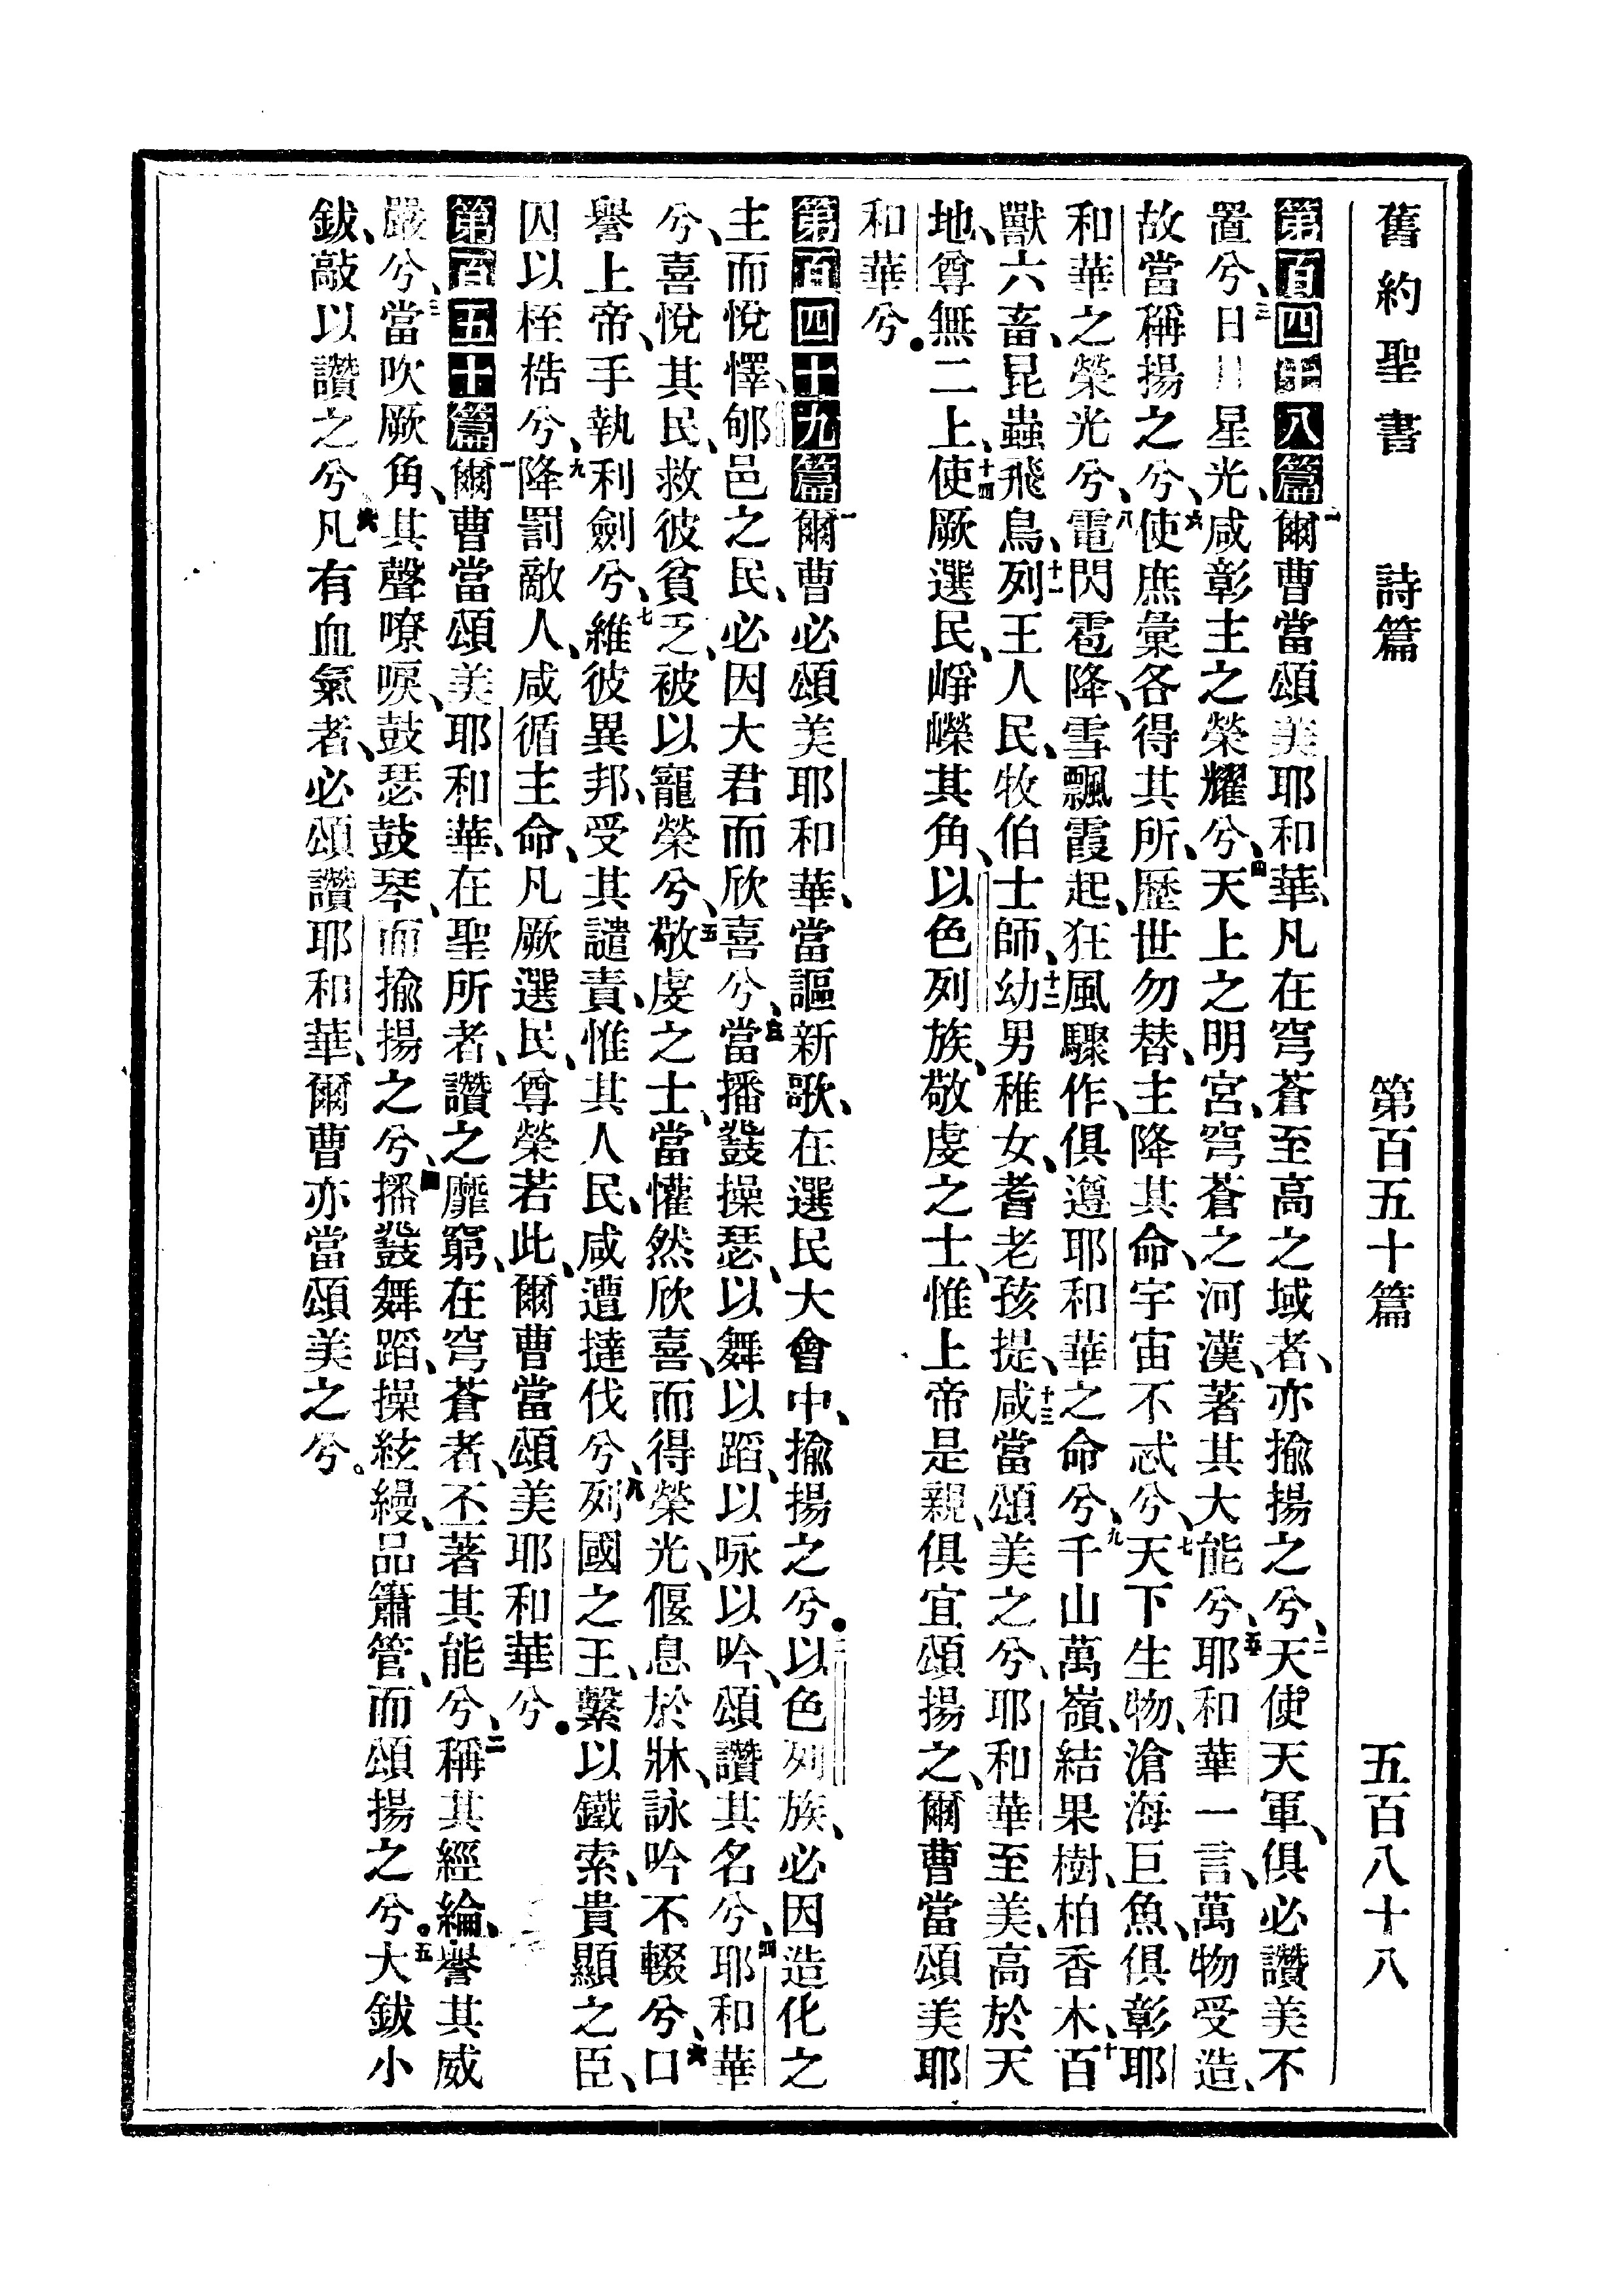 舊約聖書 詩篇 第百五十篇 五百八十八
第百四十八篇一爾曹當頌美耶和華、凡在穹蒼至高之域者、亦揄揚之兮、二天使天軍、俱必讚美不
置兮、三日月星光、咸彰主之榮耀兮、四天上之明宮、穹蒼之河漢、著其大能兮、五耶和華一言、萬物受造、
故當稱揚之兮、六使庶彙各得其所、歷世勿替、主降其命、宇宙不忒兮、七天下生物、滄海巨魚、俱彰耶
和華之榮光兮、八電閃雹降、雪飄霞起、狂風驟作、俱遵耶和華之命兮、九千山萬嶺、結果樹、柏香木、十百
獸六畜、昆蟲飛鳥、十一列王人民、牧伯士師、十二幼男稚女、耆老孩提、十三咸當頌美之兮、耶和華至美、高於天
地、尊無二上、十四使厥選民、崢嶸其角、以色列族、敬虔之士、惟上帝是親、俱宜頌揚之、爾曹當頌美耶
和華兮。
第百四十九篇一爾曹必頌美耶和華、當謳新歌、在選民大會中、揄揚之兮。二以色列族、必因造化之
主而悅懌、郇邑之民、必因大君而欣喜兮、三當播鼗操瑟、以舞以蹈、以咏以吟、頌讚其名兮、四耶和華
兮、喜悅其民、救彼貧乏、被以寵榮兮、五敬虔之士、當懽然欣喜、而得榮光、偃息於牀、詠吟不輟兮、六口
譽上帝、手執利劍兮、七維彼異邦、受其譴責、惟其人民、咸遭撻伐兮、八列國之王、繫以鐵索、貴顯之臣、
囚以桎梏兮、九降罰敵人、咸循主命、凡厥選民、尊榮若此、爾曹當頌美耶和華兮。
第百五十篇一爾曹當頌美耶和華、在聖所者、讚之靡窮、在穹蒼者、丕著其能兮、二稱其經綸、譽其威
嚴兮、三當吹厥角、其聲嘹唳、鼓瑟鼓琴、而揄揚之兮、四播鼗舞蹈、操絃縵、品簫管、而頌揚之兮。五大鈸小
鈸、敲以讚之兮、六凡有血氣者、必頌讚耶和華、爾曹亦當頌美之兮。